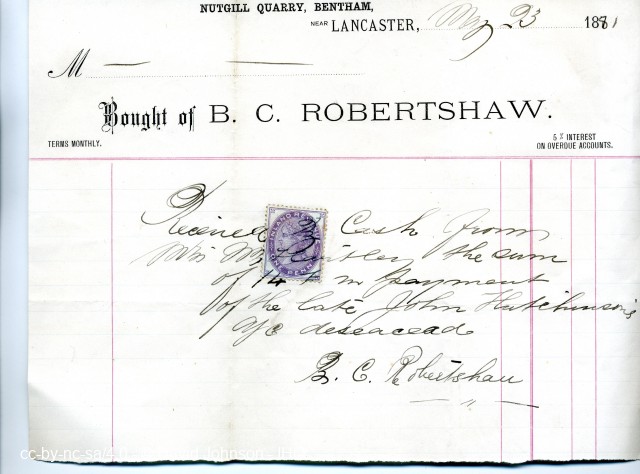 NUTGILL QUARRY, BENTHAM,
NEAR LANCASTER, May 23 1881
M
Bought of B. C. ROBERTSHAW.
TERMS MONTHLY.
5 % INTEREST
ON OVERDUE ACCOUNTS.
Received Cash from
the sum
of 14 in payment
of the late John Hutchinson's
a/c deseacead
B. C. Robertshaw
INLAND REVENUE
ONE PENNY
cc-by-nc-sa/4.0 Johnson